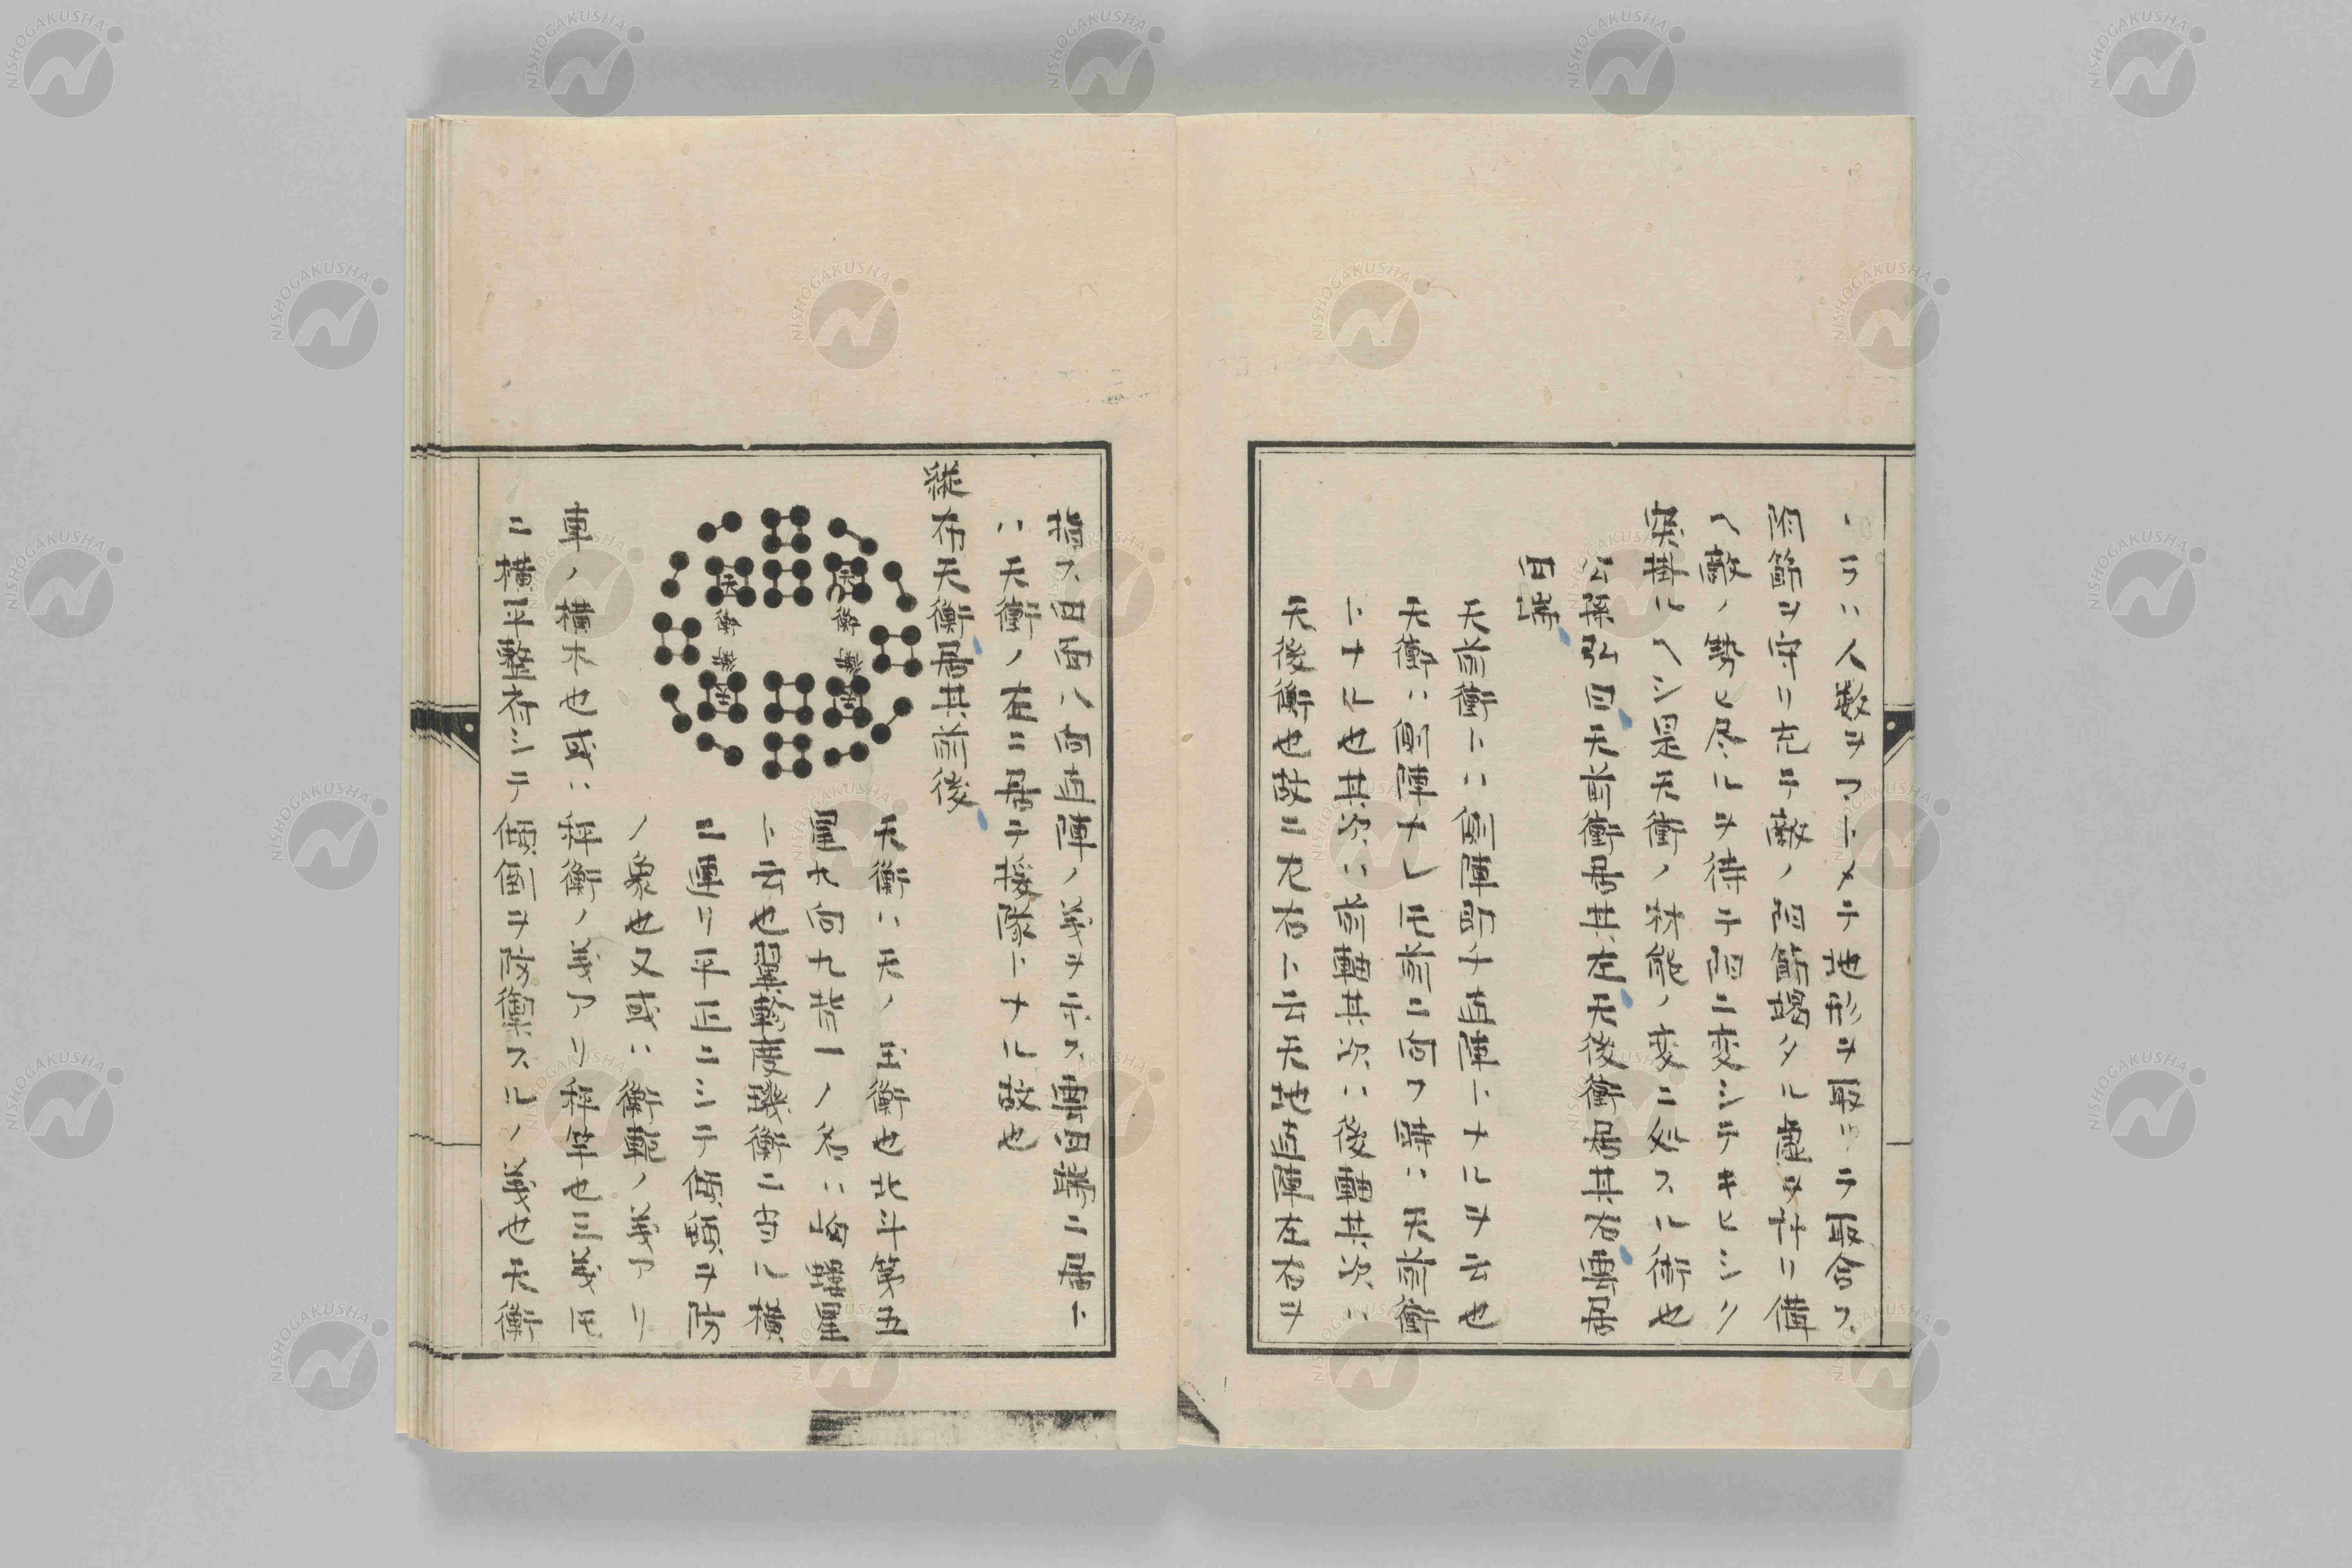 ヽラハ人数ヲマトメテ地形ヲ取リテ取合ス
陌節ヲ守リ先手敵ノ陌節竭タル虚ヲ計リ備
ヘ敵ノ勢ヒ尽ルヲ待チ陌ニ変シテキヒシク
突掛ルヘシ是天衝ノ秡能ノ変ニ処スル術也
公孫弘曰天前衝居其右天後衝居其右裏居
四端
天前衝トハ側陣即チ直陣トナルヲ云也
天衝ハ側陣ナレ𪜈前ニ向フ時ハ天前衝
トナル也其次ハ前軸其次ハ後軸其次ハ
天後衝也故ニ左右ト云天地直陣左右ヲ
指ス四面ハ向直陣ノ義ヲ示ス裏四端ニ居ト
ハ天衝ノ左ニ居テ接隊トナル故也
縦布天衡居其前後
天衡
天衡
天衡ハ天ノ玉衡也北斗第五
星九向九背一ノ名ハ
ト云也 璣衡ニ守ル横
ニ運リ平正ニシテ傾頽ヲ防
ノ象也又或ハ衡軛ノ義アリ
車ノ横木也或ハ秤衡ノ義アリ秤竿也三義𪜈
ニ横平整ニシテ傾倒ヲ防禦スルノ義也天衡
NISHOGAKUSHA